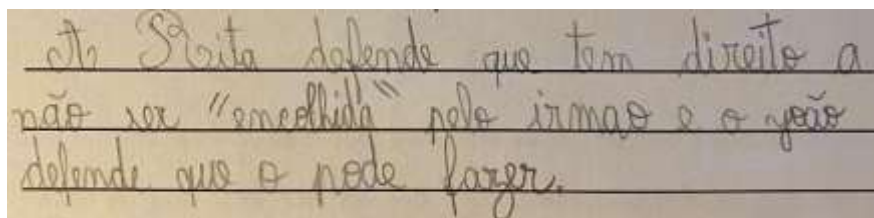 A Rita defende que tem direito a
não ser "encolhida" pelo irmao e o joão
defende que o pode fazer.